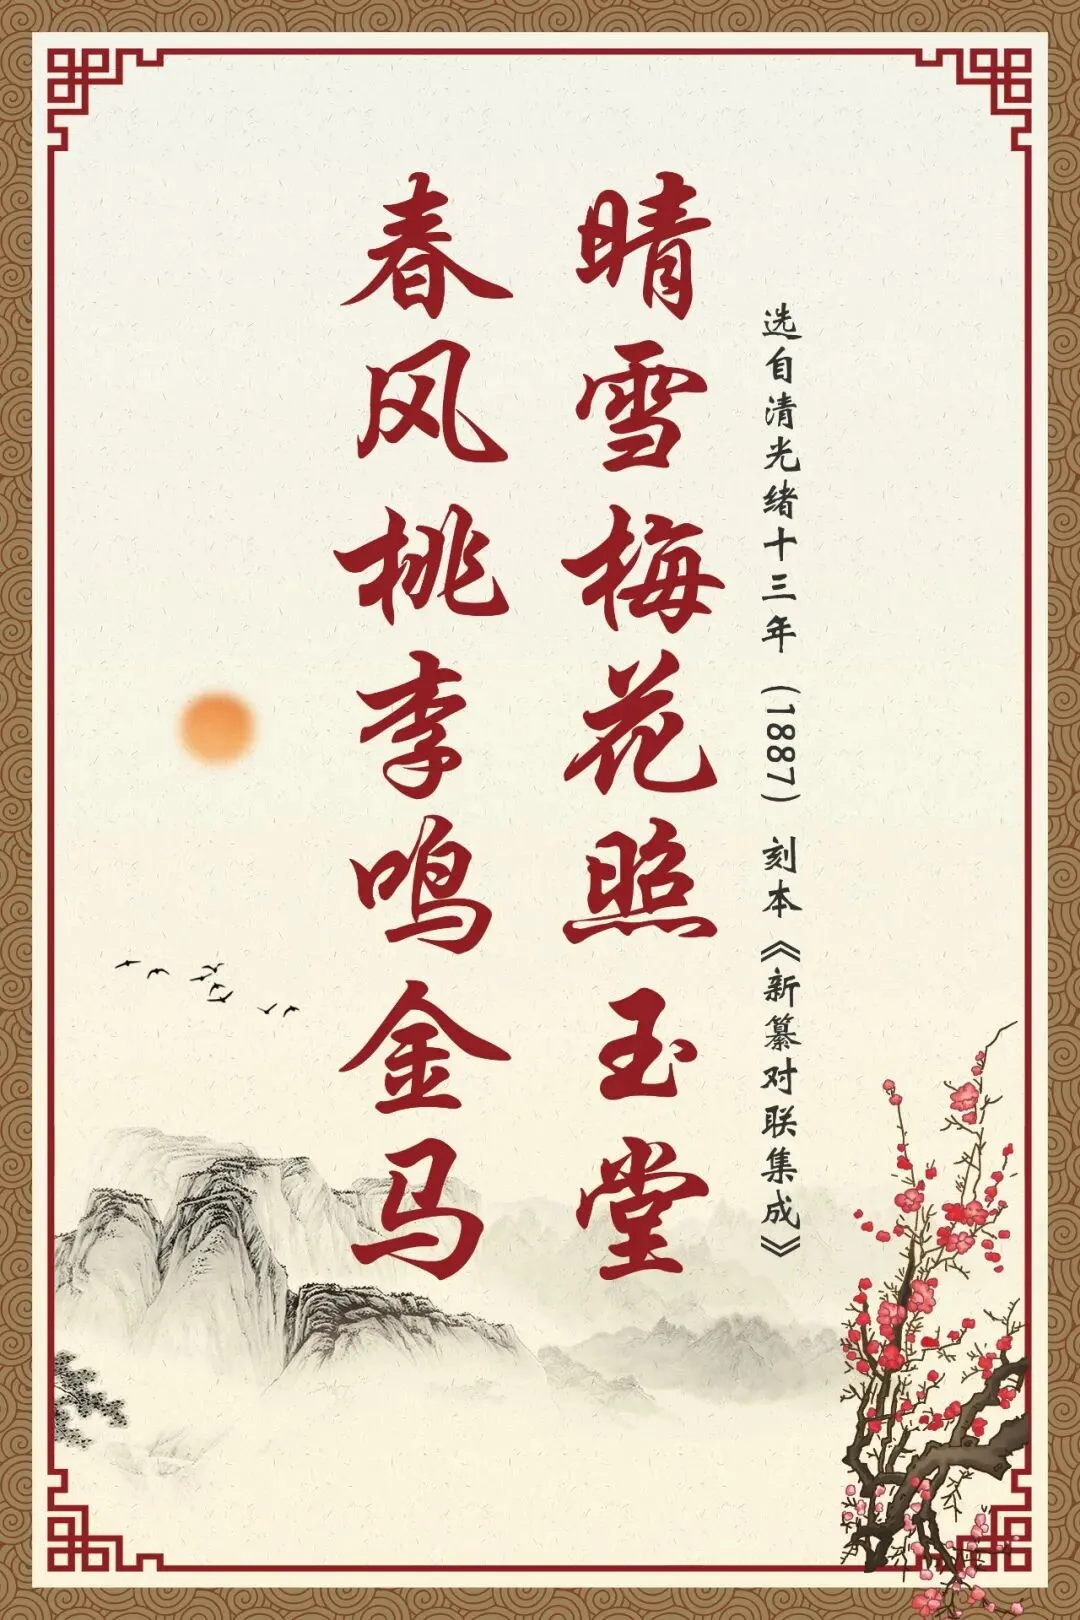 选自清光绪十三年（1887）刻本《新纂对联集成》
晴雪梅花照玉堂
春风桃李鸣金马